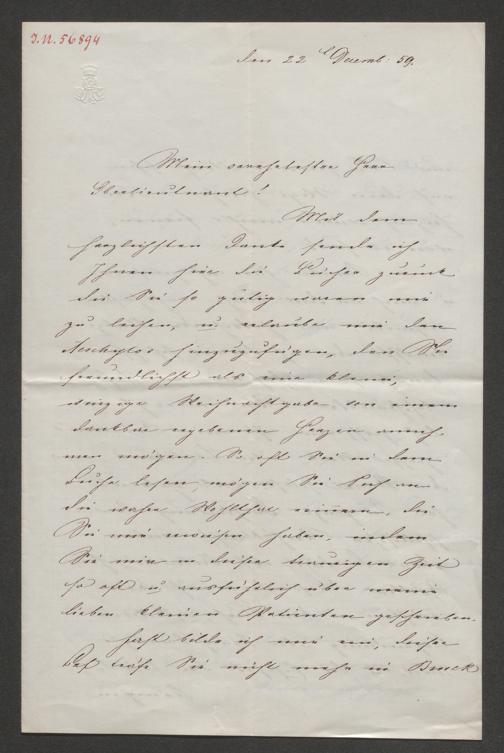 I.N. 56894
den 22t Decemb: 59.
Mein verehrtester Herr
Oberlieutnant!
Mit dem
herzlichsten Danke sende ich
Ihnen hier die Bücher zurück
die Sie so gütig waren mir
zu leihen, u erlaube mir den
Aeschylos hinzuzufügen, den Sie
freundlichst als eine kleine,
winzige Weihnachtgabe von einem
dankbar ergebenen Herzen anneh-
men mögen. So oft Sie in dem
Buche lesen, mögen Sie sich an
die wahre Wohlthat erinnern, die
Sie mir erwiesen haben, indem
Sie mir in dieser traurigen Zeit
so oft u ausführlich über meine
lieben kleinen Patienten geschrieben.
Fast bilde ich mir ein, dieser
Brief träfe Sie nicht mehr in Bruck